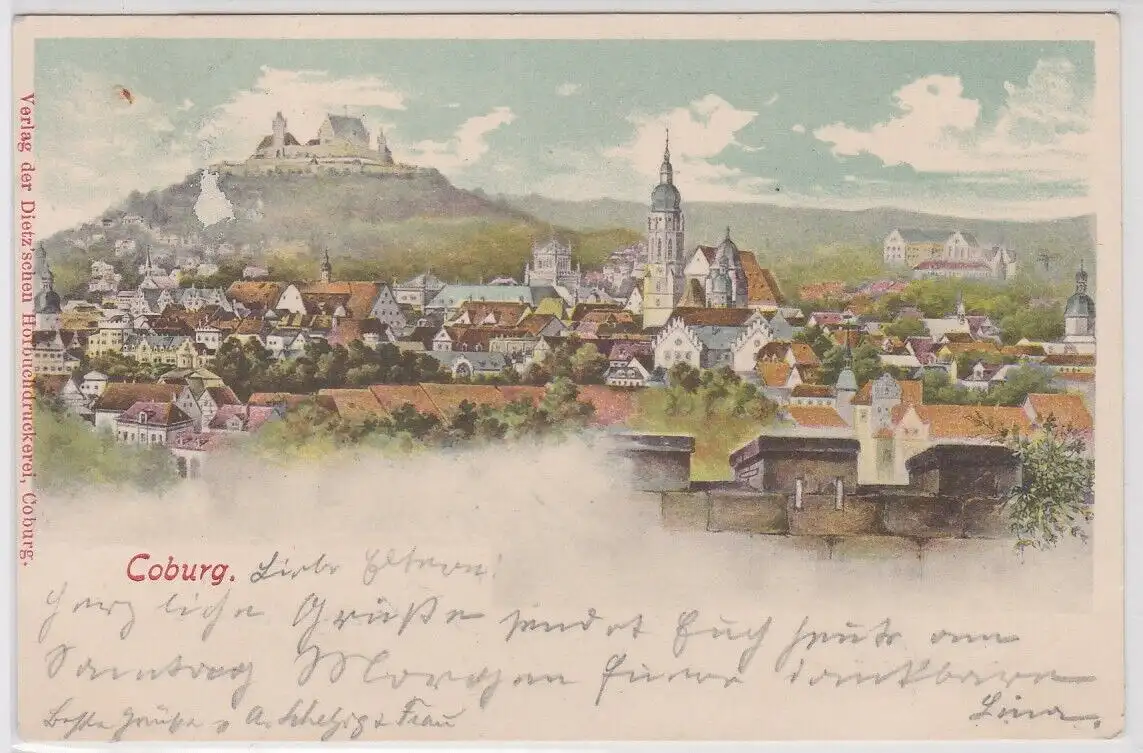 Verlag der Dietz'schen Hofbuchdruckerei, Coburg.
Coburg. Liebe Eltern!
Herzliche Grüße sendet Euch heute am
Sonntag Morgen Eure dankbare
Lina.
Beste Grüße v A. & Frau